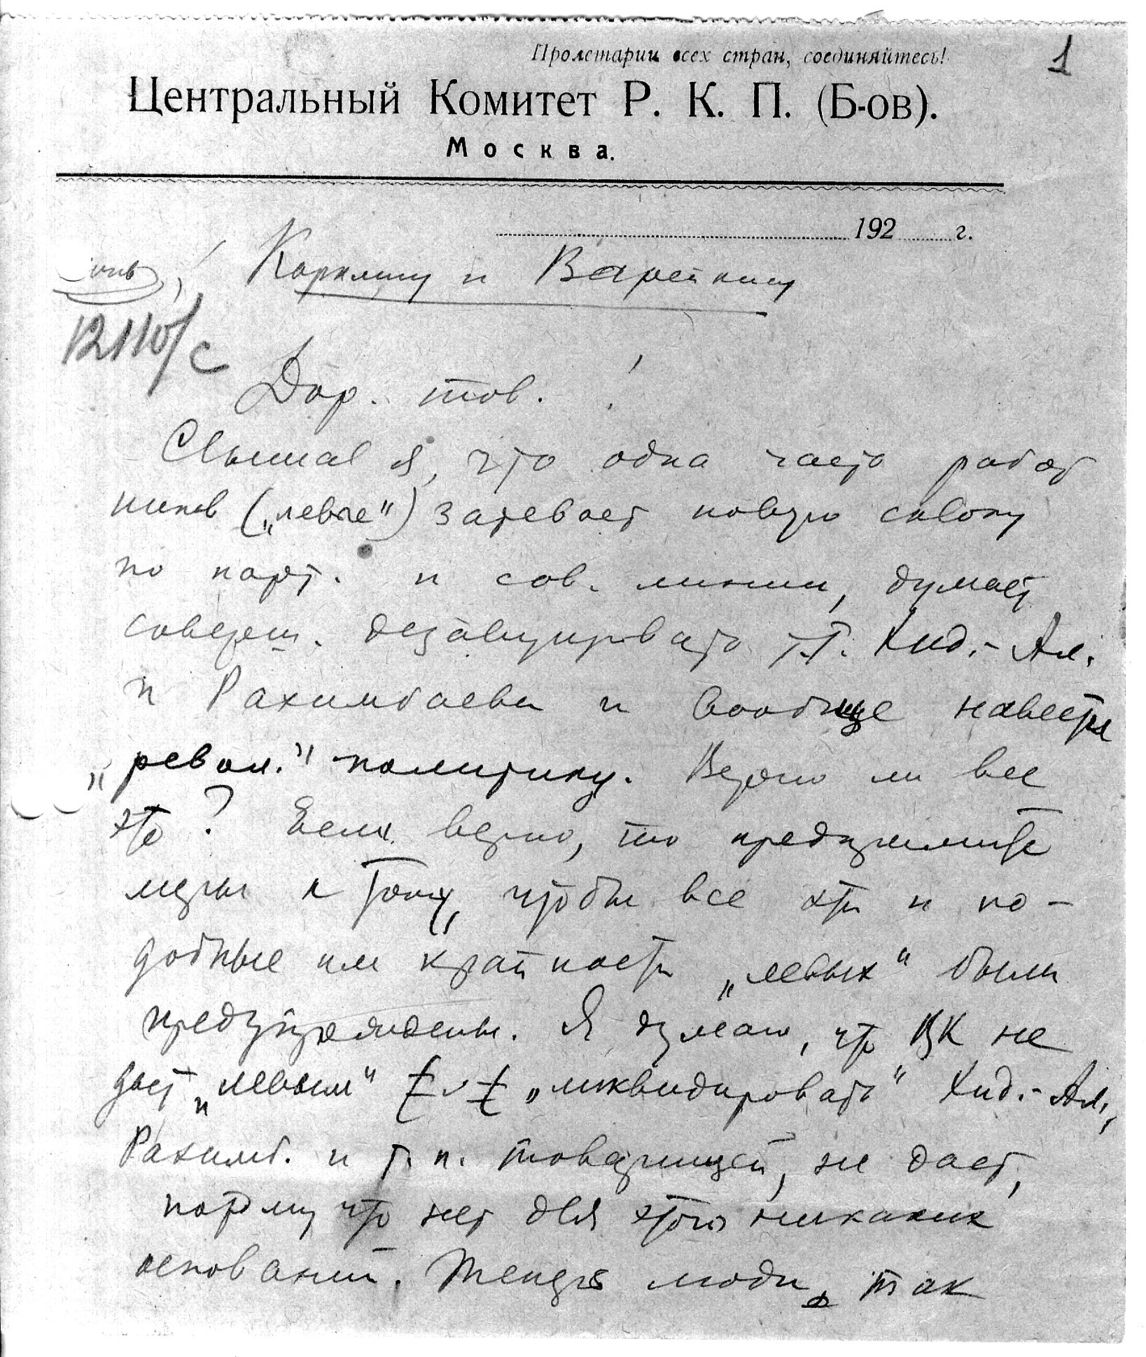 1
Пролетарии всех стран, соединяйтесь!
Центральный Комитет Р. К. П. (Б-ов).
Москва.
192 г.
Карклину и Варейкису
12110/с
Дор. тов.!
Слышал я, что одна часть работ
ников („левые“) затевает новую склоку
по парт. и сов. линии, думает
соверш. дезавуировать т.т. Хид.-Ал.
и Рахимбаева и вообще навести
„револ.“ политику. Верно ли все
это? Если верно, то предпримите
меры к тому, чтобы все эти и по-
добные им крайности „левых“ были
предупреждены. Я думаю, что ЦК не
даст „левым“ „ликвидировать“ Хид.-Ал.,
Рахимб. и т.п. товарищей, не даст,
потому что нет для этого никаких
оснований. Теперь люди, так